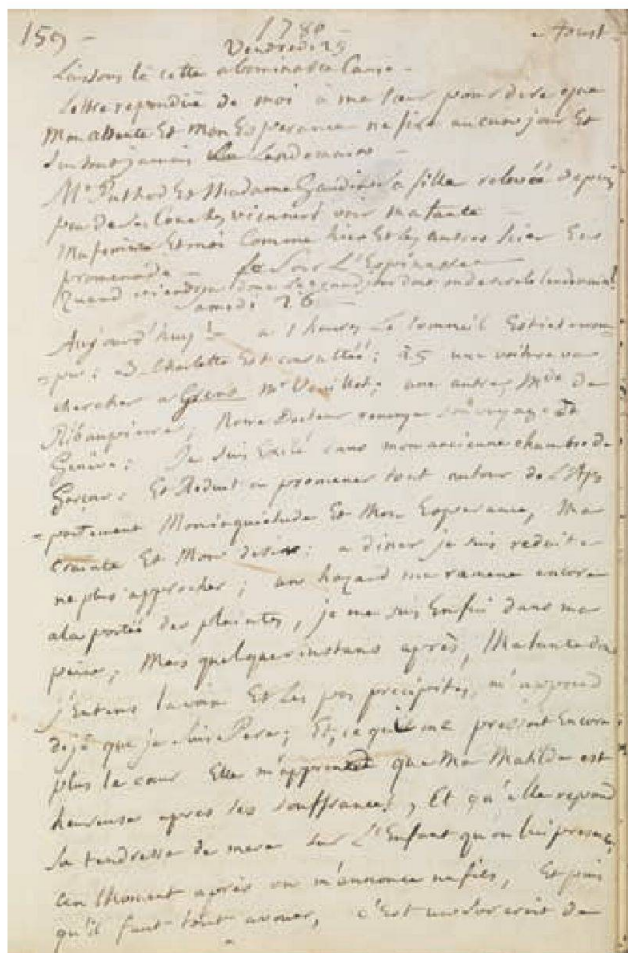 159 - 1780 - Aoust
Vendredi 25
Laissons là cette abominable
Lettre répondüe de moi à ma sœur pour dire que
Mon attente Et Mon Esperance ne fixe aucun jour Et
surtout jamais Le Lendemain -
Mr Et Madame sa fille relevée depuis
peu de ses Couches viennent voir ma tante
Et moi Comme hier Et les autres hier En
promenade - sur L'Espinasse
Quand donc le lendemain!
Samedi 26 -
Aujourd'huy! - a 1 heures Le sommeil Est
: Charlotte Est ; 25 une voiture va
chercher a Mr ; une autre Mde de
Ribaupierre, Notre Docteur voyage de
Genève; Je suis Exilé dans mon ancienne chambre de
Garçon, Et Réduit a promener tout autour de L'Ap
=partement Mon inquiétude Et Mon Esperance, Ma
crainte Et Mon desir: a diner je suis reduit a
ne plus approcher; un hazard me ramene encore
a la portée des plaintes, je me suis Enfui dans ma
peine; Mais quelques instans après, Ma tante dont
j'Entens la voix Et Les pas précipités, m'apprend
déjà que je suis Pere; Et, ce qui me pressoit Encore
plus le cœur Elle m'apprend que Ma Matilde est
heureuse apres ses souffrances, Et qu'elle repand
sa tendresse de mere sur L'Enfant qu'on lui presente,
Un Moment après on m'annonce un fils, Et puis
qu'il faut tout avouer, c'est un surcroit de